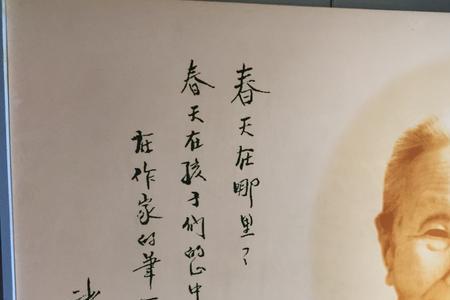 春天在哪里?
春天在孩子们的心中
在作家的筆